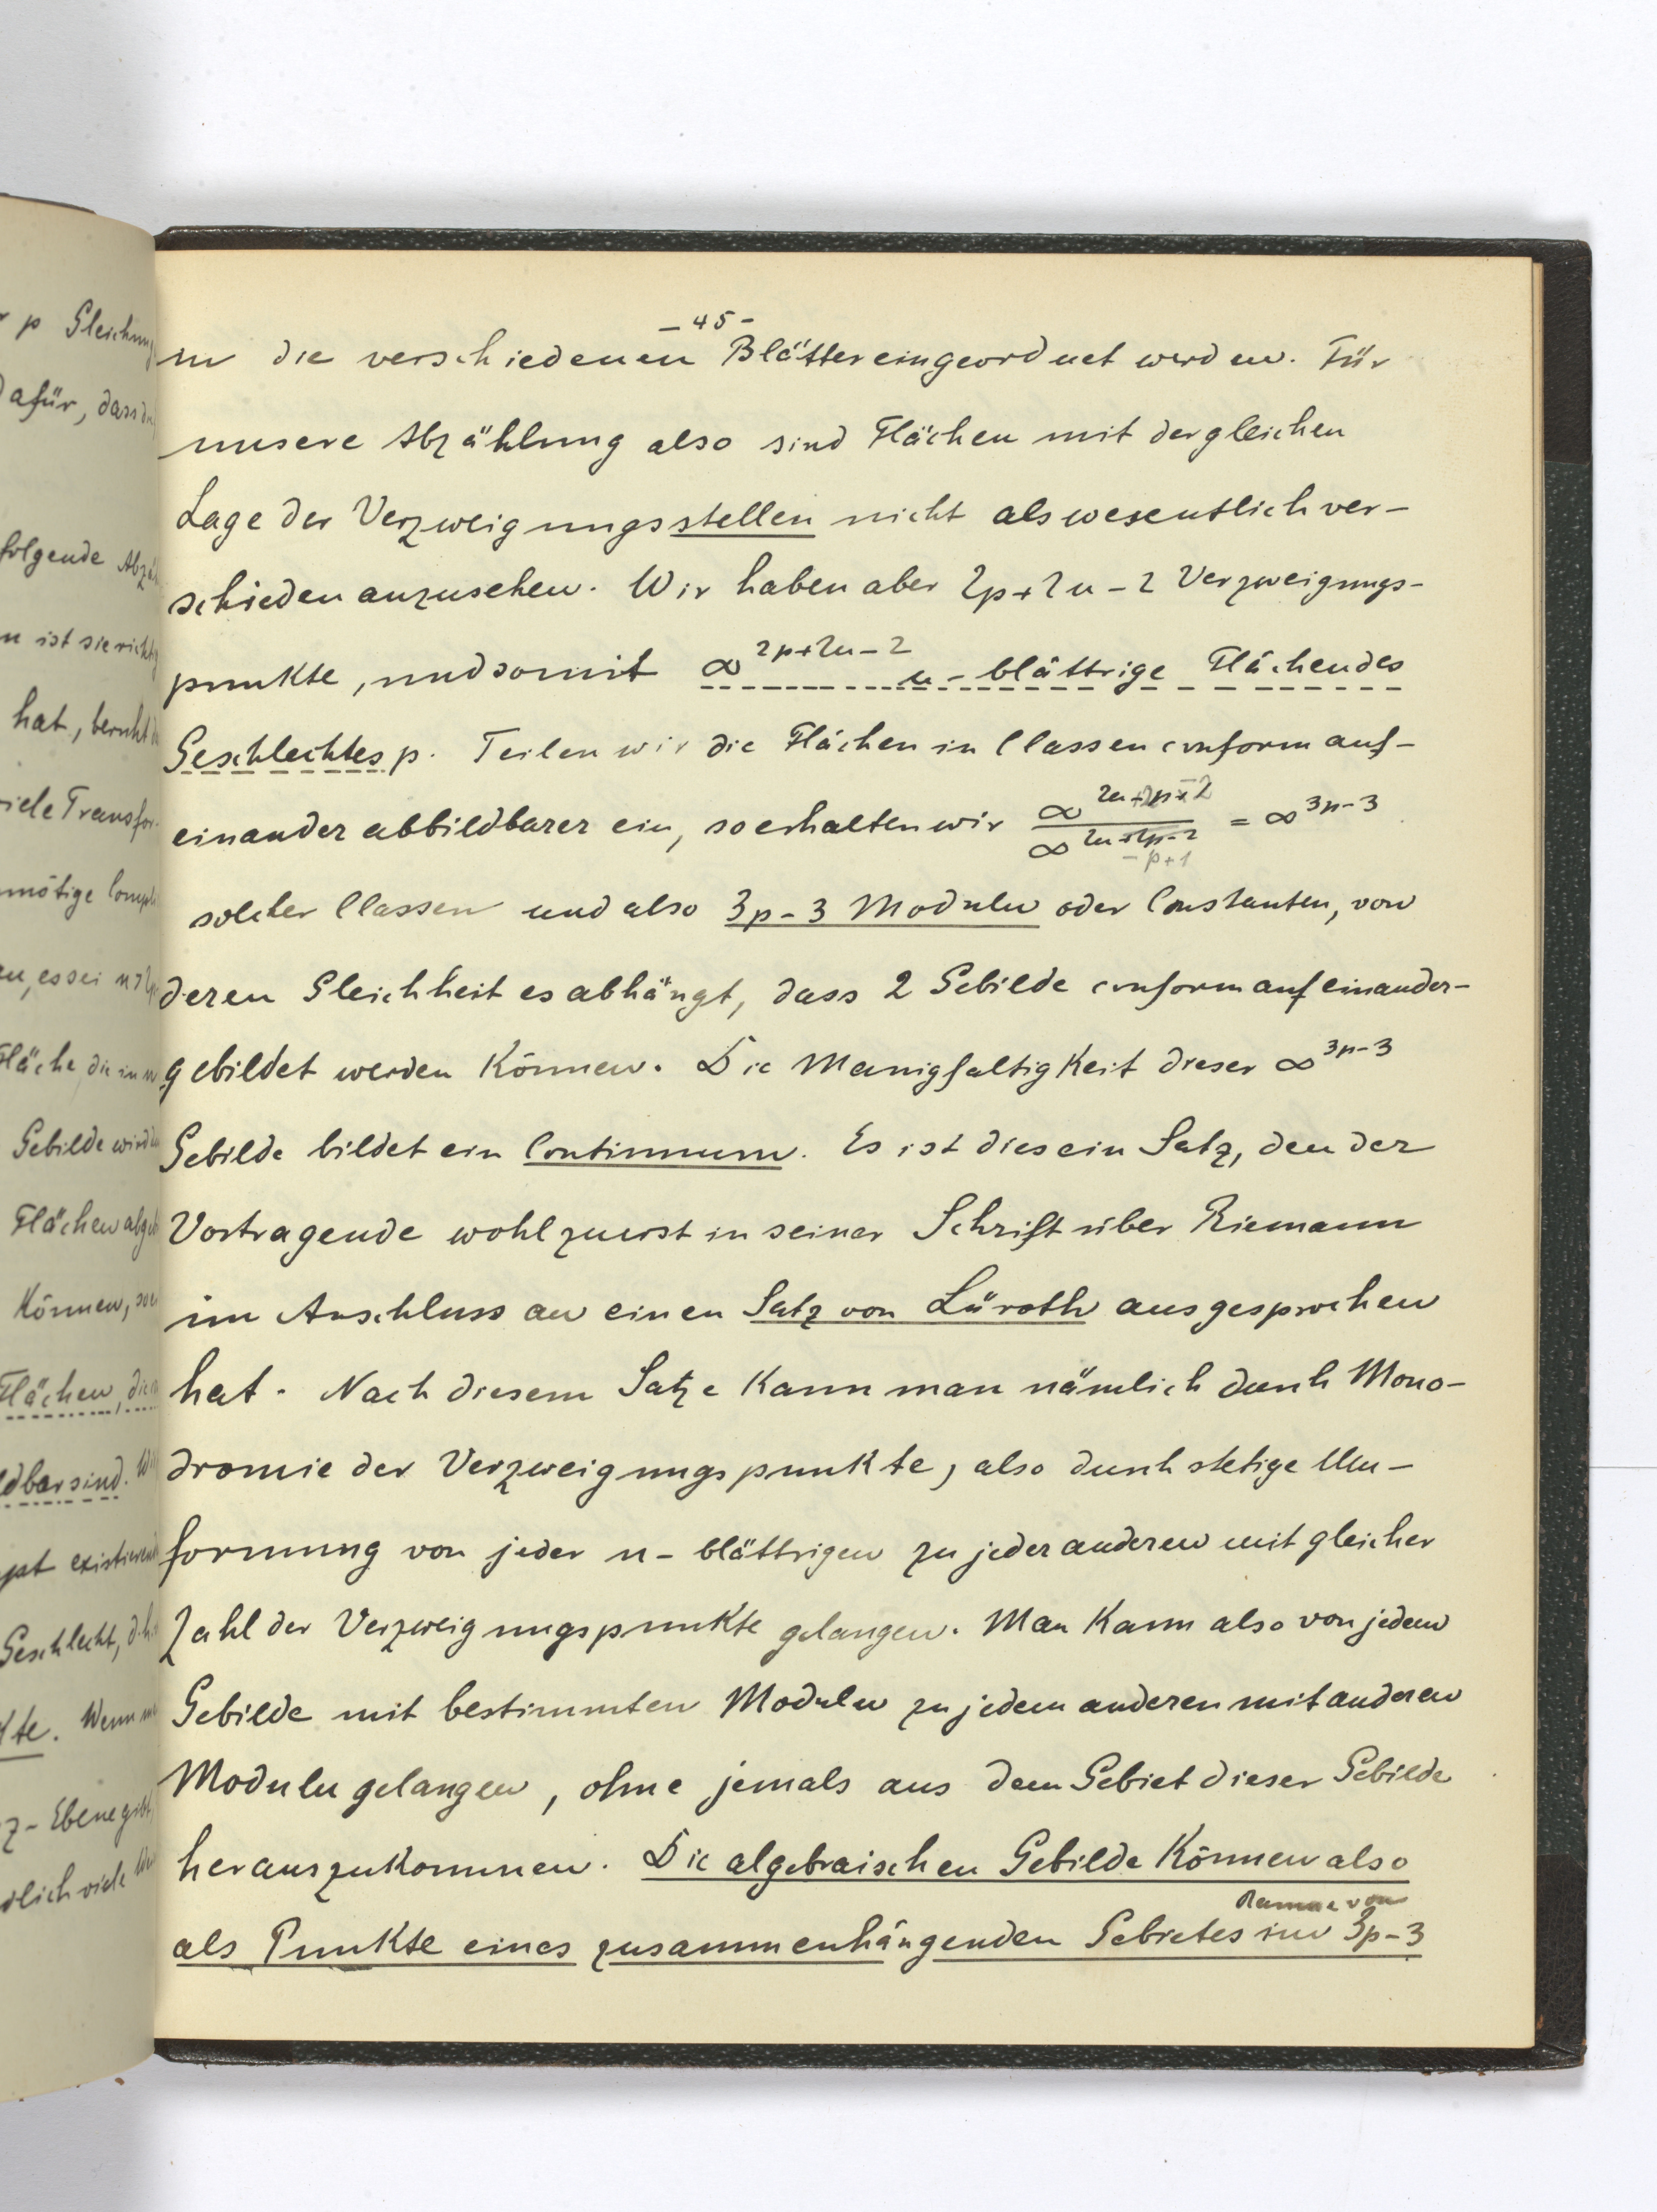 - 45 -
in die verschiedenen Blätter eingeordnet werden. Für
unsere Abzählung also sind Flächen mit der gleichen
Lage der Verzweigungsstellen nicht als wesentlich ver-
schieden anzusehen. Wir haben aber 2p+2n-2 Verzweigungs-
punkte, und somit ∞^{2p+2n-2} n-blättrige Flächen des
Geschlechtes p. Teilen wir die Flächen in Classen conform auf-
einander abbildbarer ein, so erhalten wir ∞^{2n+2p-2} / ∞^{2n-p+1} = ∞^{3p-3}
solcher Classen und also 3p-3 Moduln oder Constanten, von
deren Gleichheit es abhängt, dass 2 Gebilde conform aufeinander-
gebildet werden können. Die Manigfaltigkeit dieser ∞^{3p-3}
Gebilde bildet ein Continuum. Es ist dies ein Satz, den der
Vortragende wohl zuerst in seiner Schrift über Riemann
im Anschluss an einen Satz von Lüroth ausgesprochen
hat. Nach diesem Satze kann man nämlich durch Mono-
dromie der Verzweigungspunkte, also durch stetige Um-
formung von jeder n-blättrigen zu jeder anderen mit gleicher
Zahl der Verzweigungspunkte gelangen. Man kann also von jedem
Gebilde mit bestimmten Moduln zu jedem anderen mit anderen
Moduln gelangen, ohne jemals aus dem Gebiet dieser Gebilde
herauszukommen. Die algebraischen Gebilde können also
Raume von
als Punkte eines zusammenhängenden Gebietes im 3p-3
r p Gleichung
dafür, dass
folgende
n ist sie richtig
hat, beruht
viele Transfor-
unnötige
es sei n
Fläche, die in
Gebilde wird
Flächen
können,
Flächen,
ldbar sind.
existieren
Geschlecht, d.h.
kte. Wenn
z-Ebene gibt
dlich viele